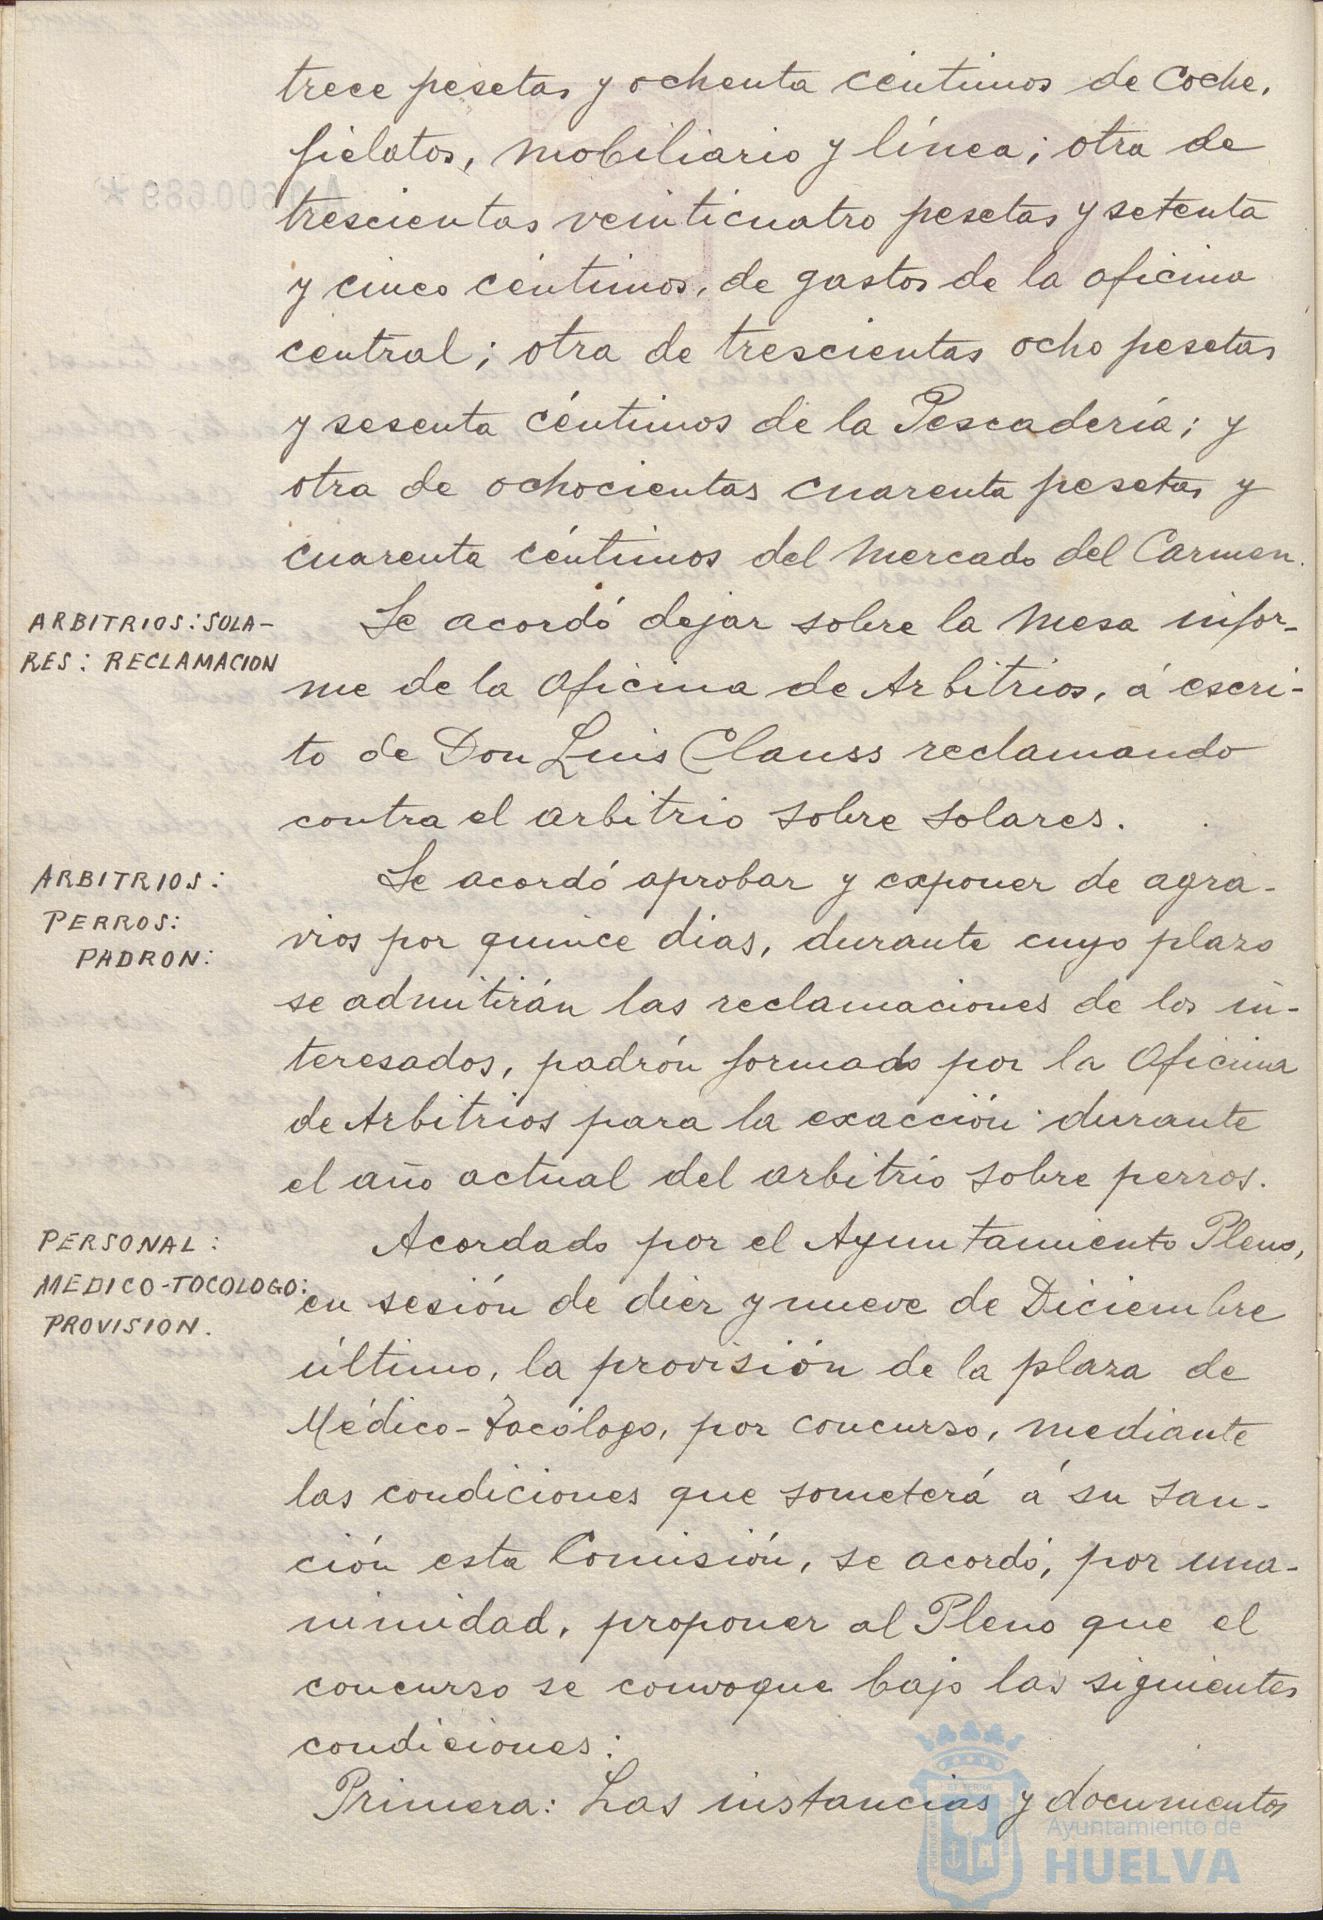 trece pesetas y ochenta céntimos de Coche,
fielatos, mobiliario y línea; otra de
trescientas veinticuatro pesetas y setenta
y cinco céntimos, de gastos de la oficina
central; otra de trescientas ocho pesetas
y sesenta céntimos de la Pescadería; y
otra de ochocientas cuarenta pesetas y
cuarenta céntimos del Mercado del Carmen.
ARBITRIOS: SOLA-
RES: RECLAMACION
Se acordó dejar sobre la Mesa infor-
me de la Oficina de Arbitrios, á escri-
to de Don Luis Clauss reclamando
contra el arbitrio sobre solares.
ARBITRIOS:
PERROS:
PADRON:
Se acordó aprobar y exponer de agra-
vios por quince dias, durante cuyo plazo
se admitirán las reclamaciones de los in-
teresados, padrón formado por la Oficina
de Arbitrios para la exacción durante
el año actual del arbitrio sobre perros.
PERSONAL:
MEDICO-TOCOLOGO:
PROVISION.
Acordado por el Ayuntamiento Pleno,
en sesión de diez y nueve de Diciembre
último, la provisión de la plaza de
Médico-Tocólogo, por concurso, mediante
las condiciones que someterá á su san-
ción esta Comisión, se acordó, por una-
nimidad, proponer al Pleno que el
concurso se convoque bajo las siguientes
condiciones:
Primera: Las instancias y documentos
A0600689*
Ayuntamiento de
HUELVA